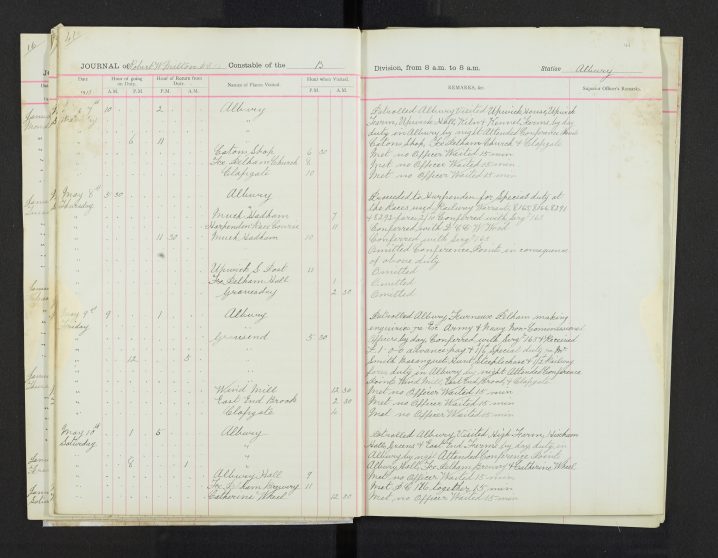 41
JOURNAL of Robert W Constable of the B Division, from 8 a.m. to 8 a.m. Station Albury
Date Hour of going on Duty. Hour of Return from Duty. Names of Places Visited. Hour when Visited. REMARKS, &c. Superior Officer's Remarks.
1913 A.M. P.M. P.M. A.M. P.M. A.M.
7th 10 2 Albury Patrolled Albury Visited Upwick House, Upwick
" Farm, Upwick Hall, Kiln & Kennel Farms by day
6 11 duty in Albury by night Attended Conference Points
Catons Shop 6 30 Catons Shop, Fx Pelham Church & Clapgate
Fx Pelham Church 8 Met no Officer Waited 15 min
Clapgate 10 Met no Officer Waited 15 min
Met no Officer Waited 15 min
May 8th 5 30 Albury Proceeded to Harpenden for Special duty at
Thursday the Races, used Railway Warrants
Much Hadham 7 fare 2/10 Conferred with Sergt 163
Harpenden Race Course 11 Conferred with
Much Hadham 11 30 10 Conferred with Sergt 163
Omitted Conference Points in consequence
of above duty
Upwick S Post 11 Omitted
Fx Pelham Hall 1 Omitted
Gravesday 2 30 Omitted
May 9th 9 1 Albury Patrolled Albury Furneux Pelham making
Friday " enquiries re Ex Army & Navy Non-Commissioned
Gravesend 5 30 Officers by day, Conferred with Sergt 163 & Received
" £1-0-0 advance pay & 7/6 Special duty
12 5 Smith Bosanquet Hunt Steeplechase & Railway
fare, duty in Albury by night Attended Conference
Points Wind Mill, East End Brook, & Clapgate
Wind Mill 12 30 Met no Officer Waited 15 min
East End Brook 2 30 Met no Officer Waited 15 min
Clapgate 4 Met no Officer Waited 15 min
May 10th 1 5 Albury Patrolled Albury Visited High Farm, Hixham
Saturday " Hall, Greens & East End Farms by day, duty in
8 1 " Albury by night Attended Conference Points
Albury Hall, Fx Pelham Brewery & Catherine Wheel
Albury Hall 9 Met no Officer Waited 15 min
Fx Pelham Brewery 11 Met P.C. 176 together 15 min
Catherine Wheel 12 30 Met no Officer Waited 15 min